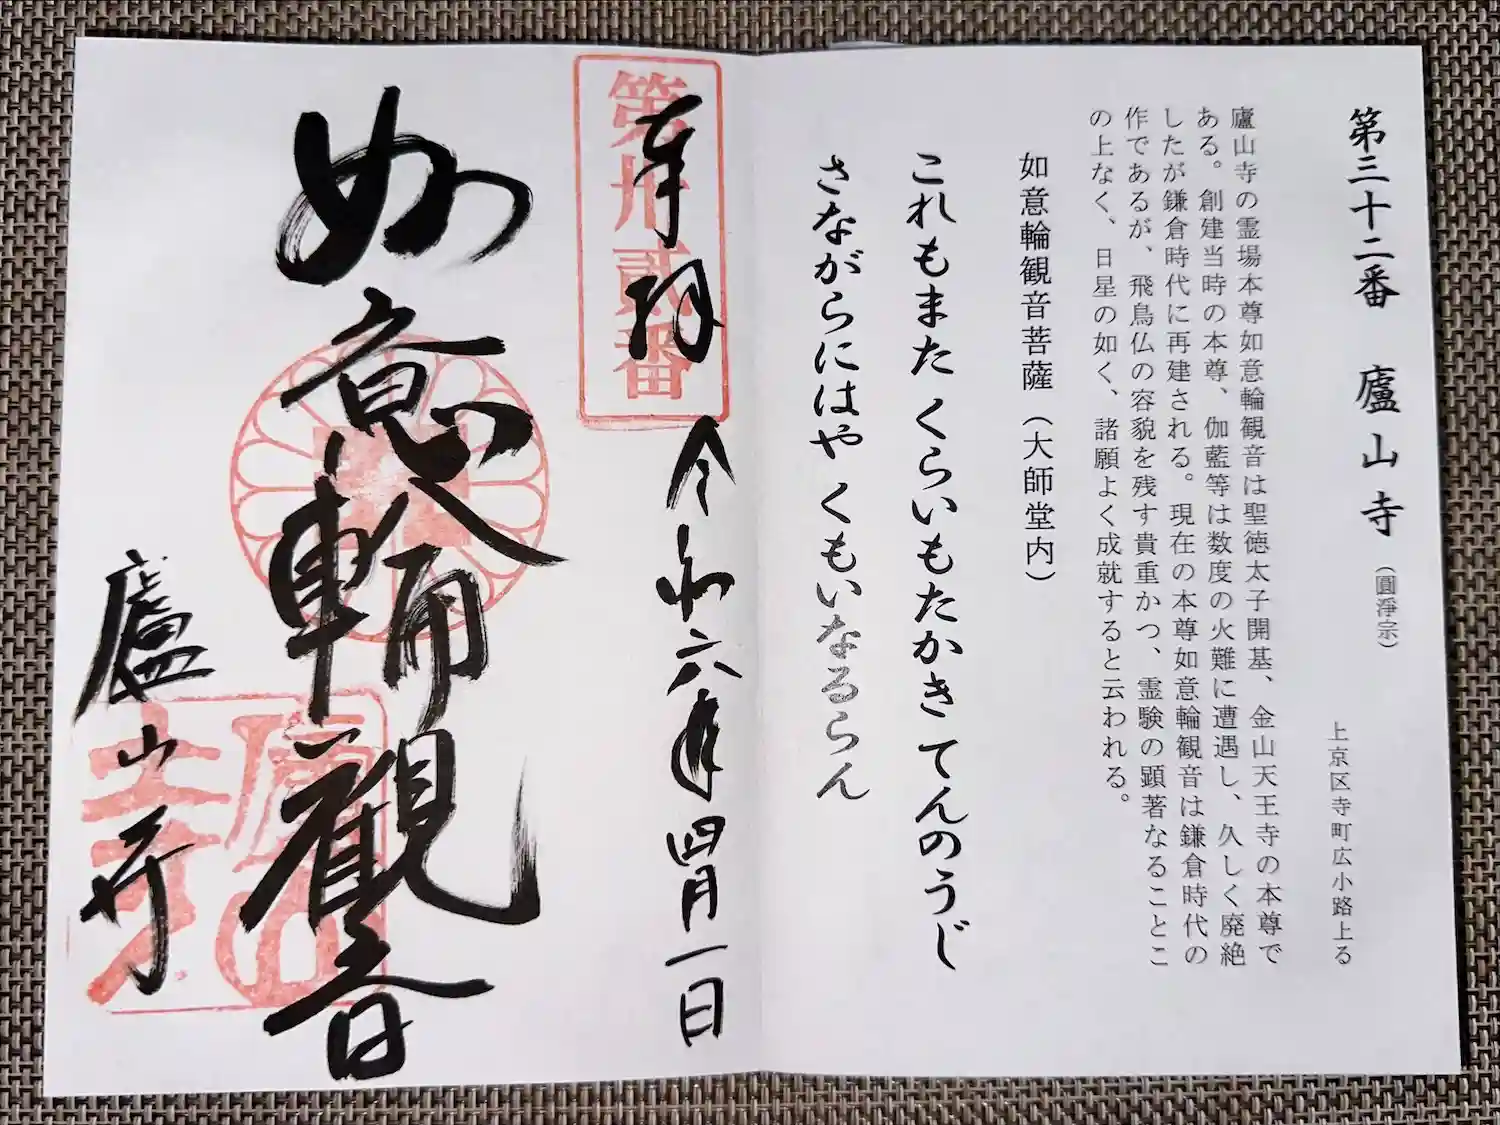 第三十二番 廬山寺（圓淨宗）
上京区寺町広小路上る
廬山寺の霊場本尊如意輪観音は聖徳太子開基、金山天王寺の本尊で
ある。創建当時の本尊、伽藍等は数度の火難に遭遇し、久しく廃絶
したが鎌倉時代に再建される。現在の本尊如意輪観音は鎌倉時代の
作であるが、飛鳥仏の容貌を残す貴重かつ、霊験の顕著なることこ
の上なく、日星の如く、諸願よく成就すると云われる。
如意輪観音菩薩（大師堂内）
これもまたくらいもたかきてんのうじ
さながらにはやくもいなるらん
第卅貳番
奉拝 令和六年四月一日
如意輪観音
廬山寺
廬山
寺